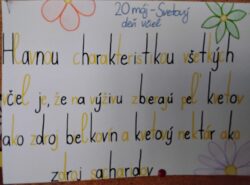 20 máj - Svetový
deň včiel
Hlavnou charakteristikou všetkých
včiel je, že na výživu zbierajú peľ kvetov
ako zdroj bielkovín a kvetový nektár ako
zdroj sacharidov